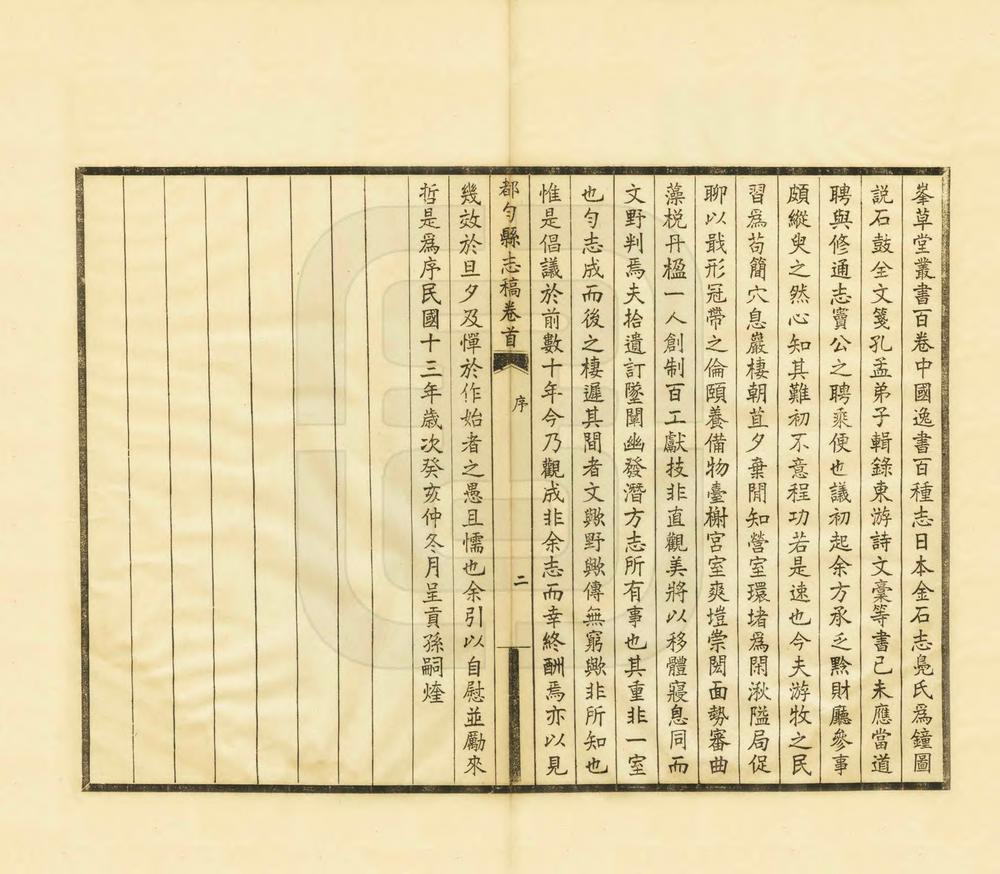 峯草堂叢書百卷中國逸書百種志日本金石志鳧氏爲鐘圖
説石鼓全文箋孔孟弟子輯錄東游詩文稾等書己未應當道
聘與修通志竇公之聘乘便也議初起余方承乏黔財廳參事
頗縱臾之然心知其難初不意程功若是速也今夫游牧之民
習爲苟簡穴息巖棲朝苴夕棄閒知營室環堵爲閑湫隘局促
聊以戢形冠帶之倫頤養備物臺榭宮室爽塏崇閎面勢審曲
藻梲丹楹一人創制百工獻技非直觀美將以移體寢息同而
文野判焉夫拾遺訂墜闡幽發潛方志所有事也其重非一室
也勻志成而後之棲遲其間者文歟野歟傳無窮歟非所知也
惟是倡議於前數十年今乃觀成非余志而幸終酬焉亦以見
都勻縣志稿卷首
序
二
幾效於旦夕及憚於作始者之愚且懦也余引以自慰並勵來
哲是爲序民國十三年歲次癸亥仲冬月呈貢孫嗣煃